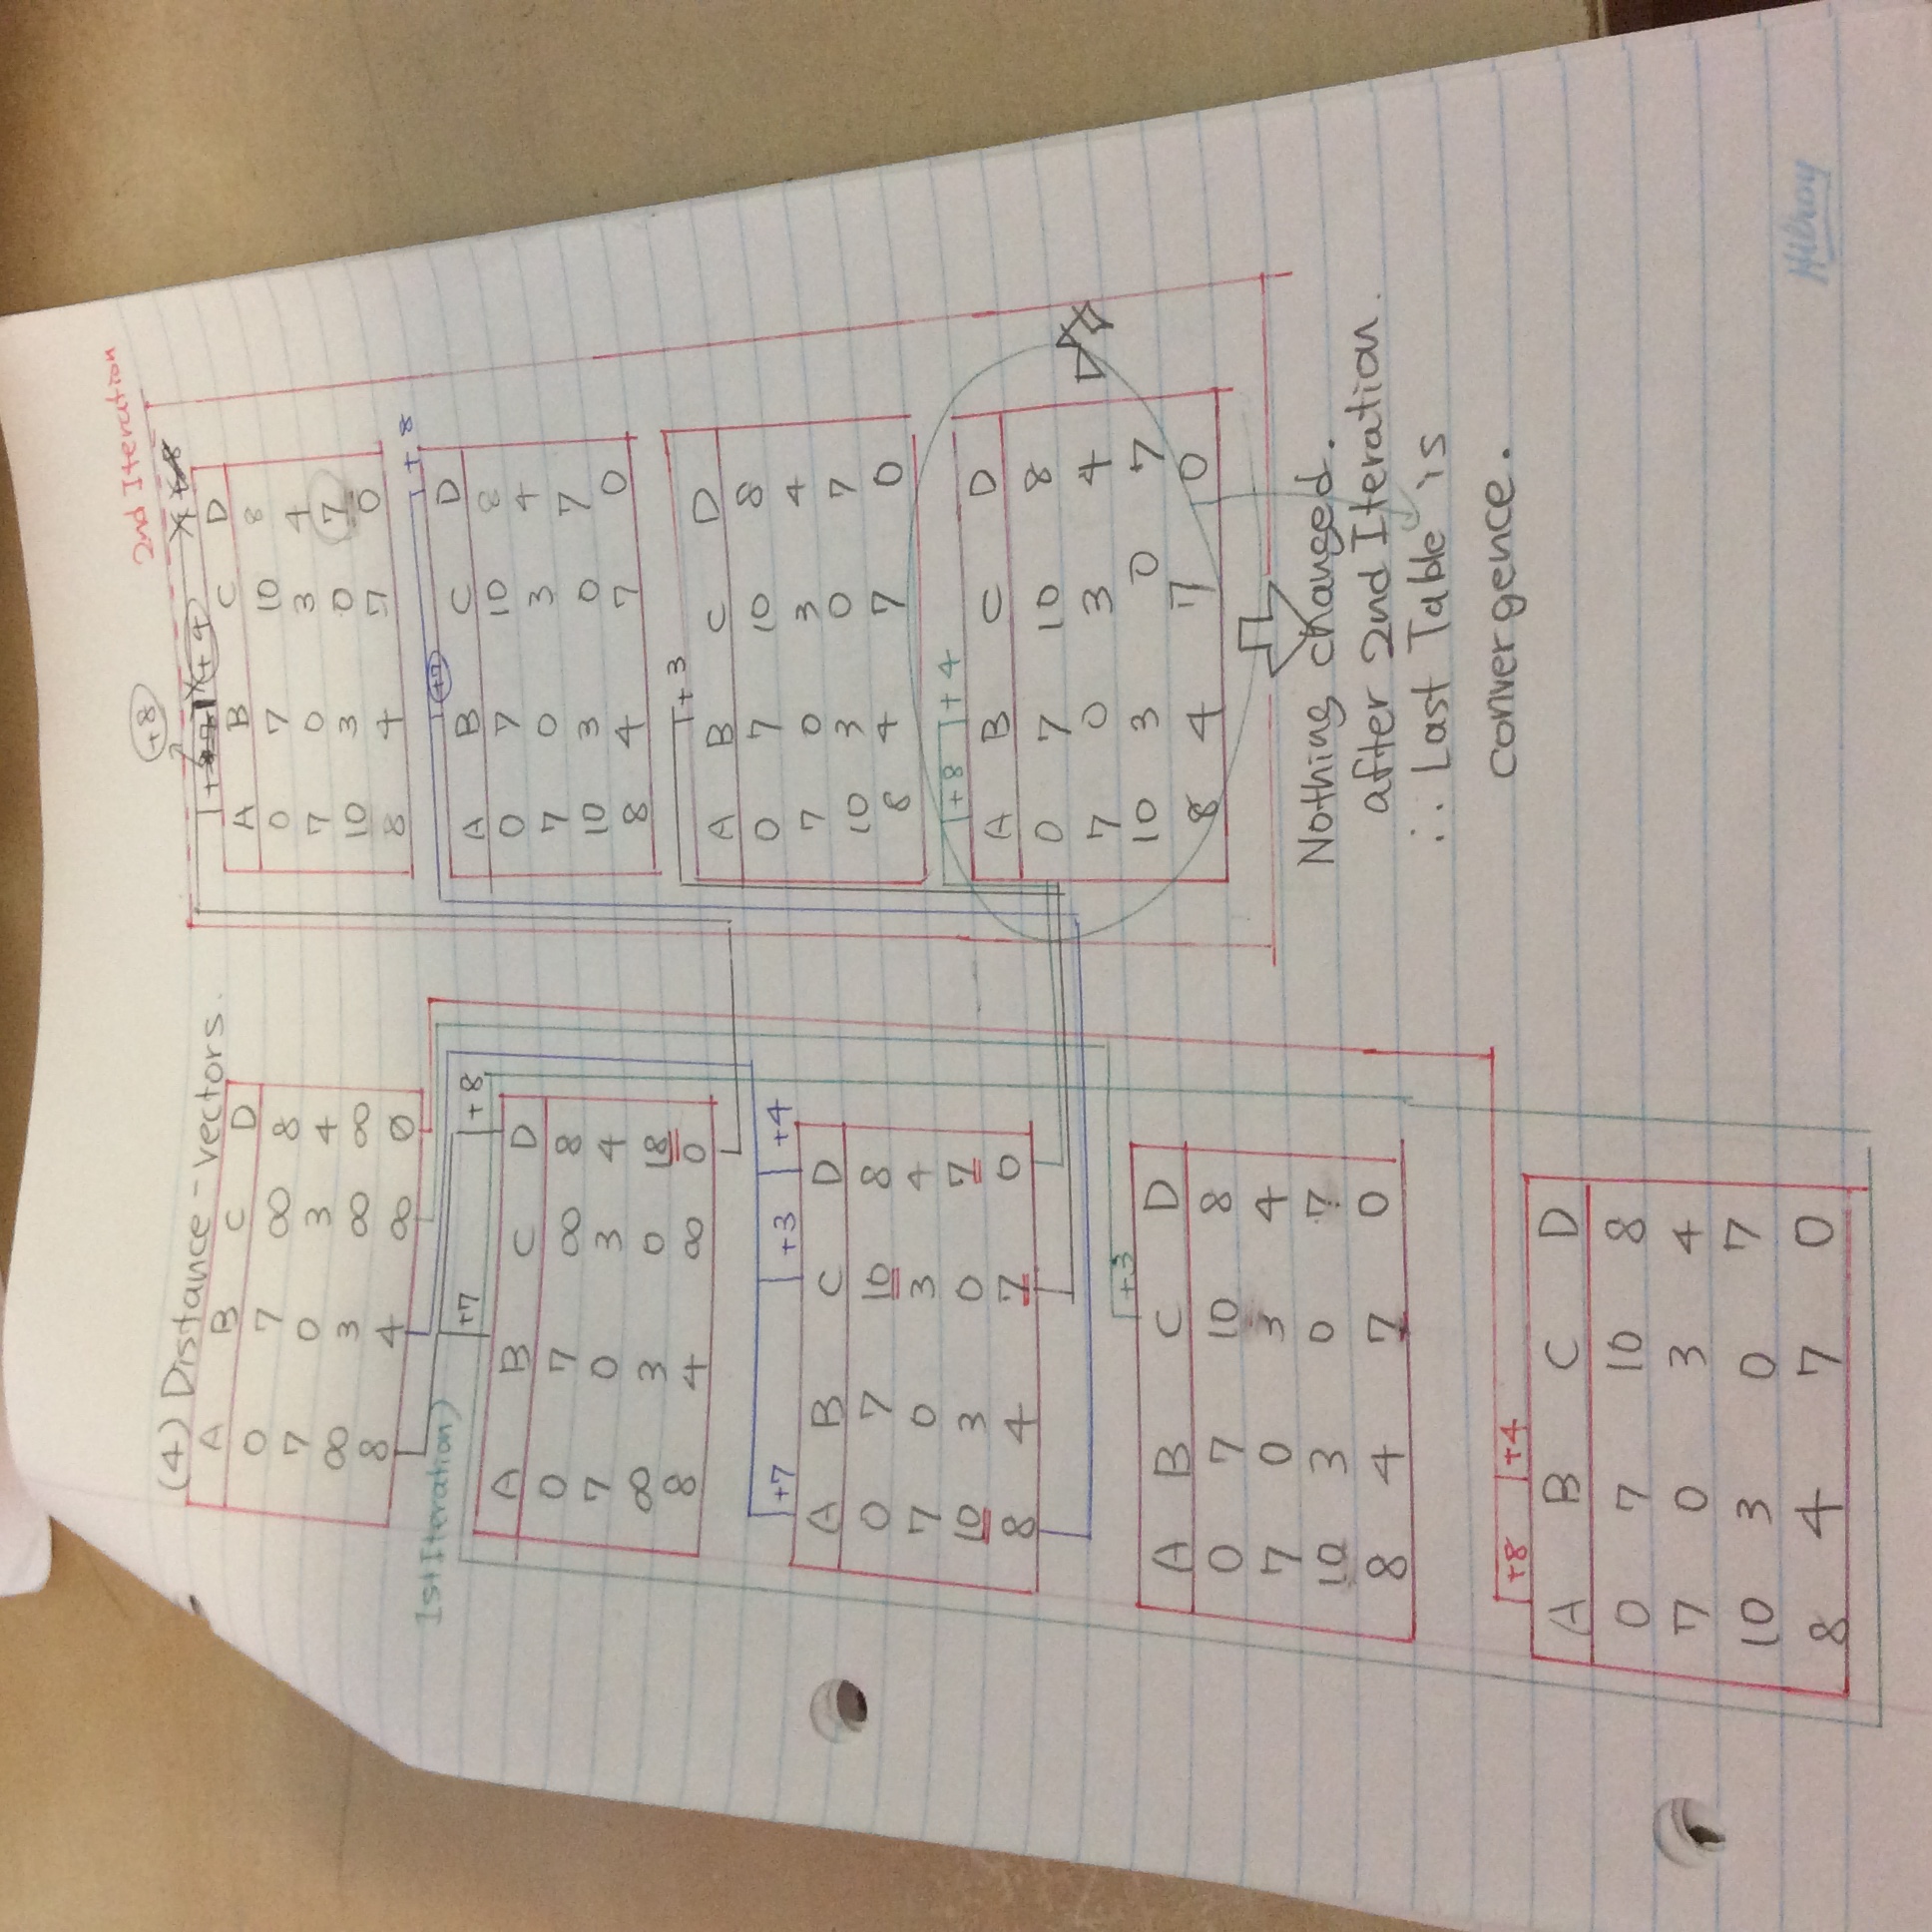 (4) Distance-vectors.
A B C D
0 7 ∞ 8
7 0 3 4
∞ 3 ∞ ∞
8 4 ∞ 0
1st Iteration)
+7 +8
A B C D
0 7 ∞ 8
7 0 3 4
∞ 3 0 18
8 4 ∞ 0
+7 +3 +4
A B C D
0 7 10 8
7 0 3 4
10 3 0 7
8 4 7 0
+3
A B C D
0 7 10 8
7 0 3 4
10 3 0 7
8 4 7 0
+8 +4
A B C D
0 7 10 8
7 0 3 4
10 3 0 7
8 4 7 0
2nd Iteration
+8
+4
A B C D
0 7 10 8
7 0 3 4
10 3 0 7
8 4 7 0
+7 +8
A B C D
0 7 10 8
7 0 3 4
10 3 0 7
8 4 7 0
+3
A B C D
0 7 10 8
7 0 3 4
10 3 0 7
8 4 7 0
+8 +4
A B C D
0 7 10 8
7 0 3 4
10 3 0 7
8 4 7 0
Nothing changed.
after 2nd Iteration.
∴ Last Table is
convergence.
Hilroy